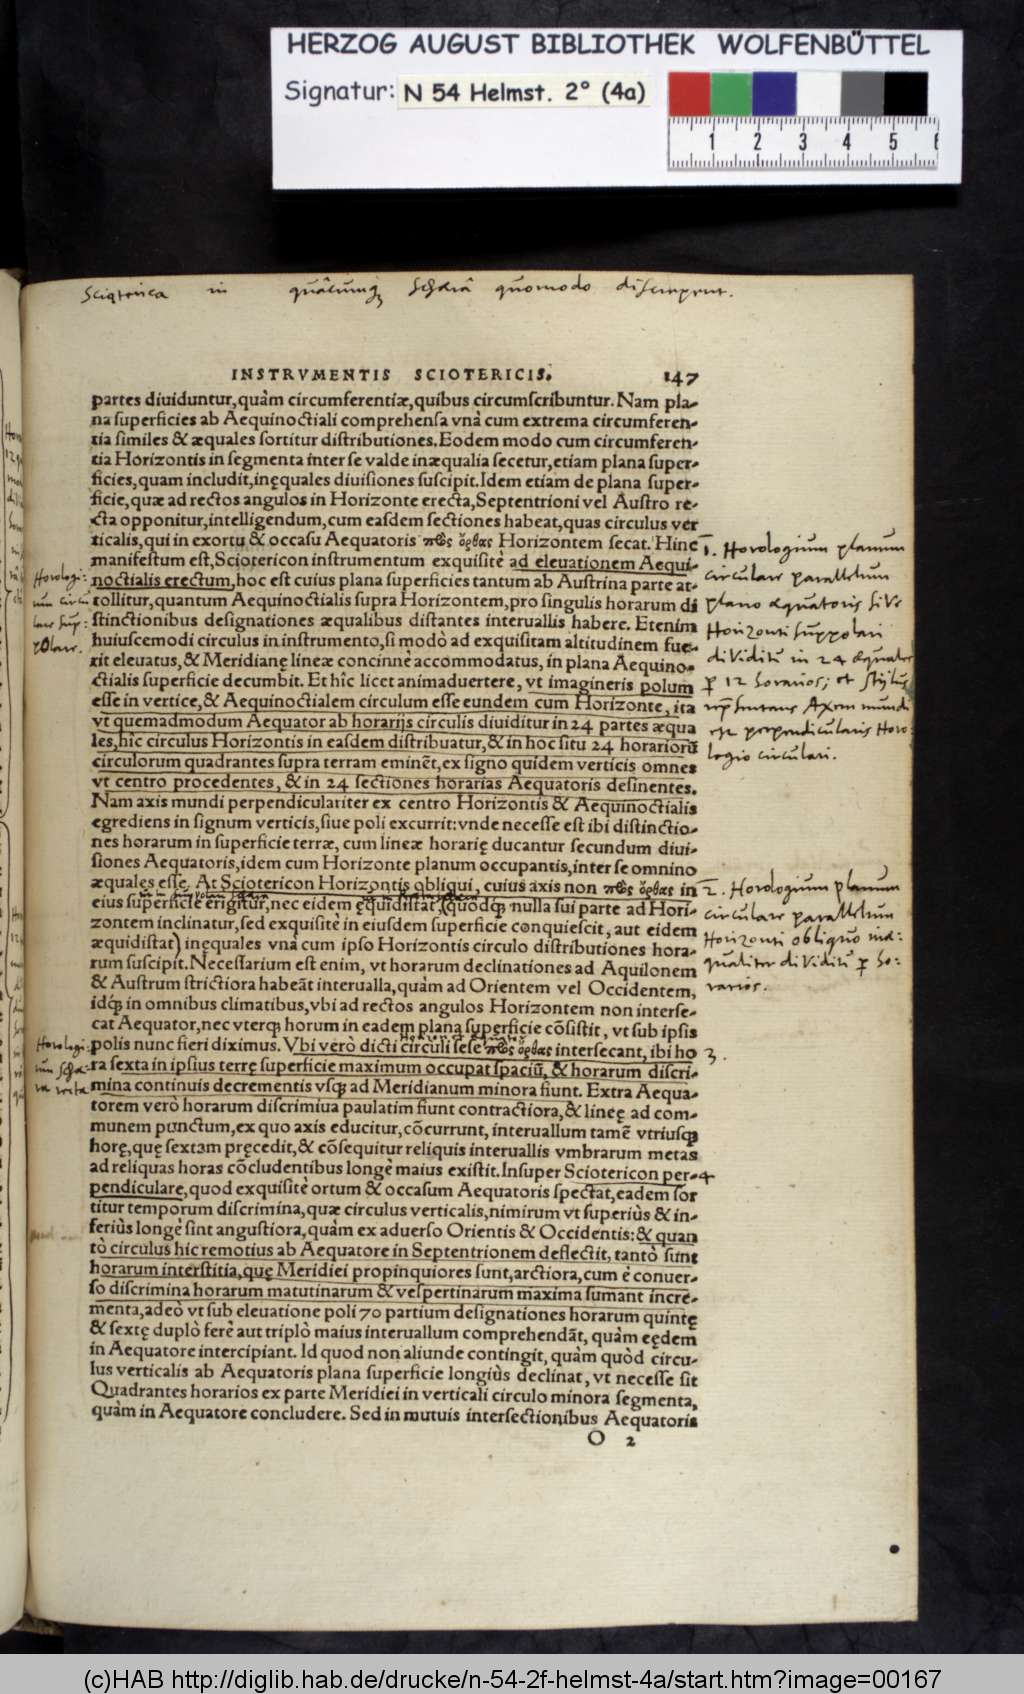 HERZOG AUGUST BIBLIOTHEK WOLFENBÜTTEL
Signatur: N 54 Helmst. 2° (4a)
1 2 3 4 5
Scioterica in quâcumq; sphærâ quomodo discrepent.
INSTRVMENTIS SCIOTERICIS. 147
partes diuiduntur, quàm circumferentiæ, quibus circumscribuntur. Nam pla-
na superficies ab Aequinoctiali comprehensa vnà cum extrema circumferen-
tia similes & æquales sortitur distributiones. Eodem modo cum circumferen-
tia Horizontis in segmenta inter se valde inæqualia secetur, etiam plana super-
ficies, quam includit, inęquales diuisiones suscipit. Idem etiam de plana super-
ficie, quæ ad rectos angulos in Horizonte erecta, Septentrioni vel Austro re-
cta opponitur, intelligendum, cum easdem sectiones habeat, quas circulus ver
ticalis, qui in exortu & occasu Aequatoris πρὸς ὄρθας Horizontem secat. Hinc
manifestum est, Sciotericon instrumentum exquisitè ad eleuationem Aequi-
noctialis erectum, hoc est cuius plana superficies tantum ab Austrina parte at-
tollitur, quantum Aequinoctialis supra Horizontem, pro singulis horarum di
stinctionibus designationes æqualibus distantes interuallis habere. Etenim
huiuscemodi circulus in instrumento, si modò ad exquisitam altitudinem fue-
rit eleuatus, & Meridianę lineæ concinnè accommodatus, in plana Aequino-
ctialis superficie decumbit. Et hîc licet animaduertere, vt imagineris polum
esse in vertice, & Aequinoctialem circulum esse eundem cum Horizonte, ita
vt quemadmodum Aequator ab horarijs circulis diuiditur in 24 partes æqua
les, hîc circulus Horizontis in easdem distribuatur, & in hoc situ 24 horariorũ
circulorum quadrantes supra terram eminẽt, ex signo quidem verticis omnes
vt centro procedentes, & in 24 sectiones horarias Aequatoris desinentes.
Nam axis mundi perpendiculariter ex centro Horizontis & Aequinoctialis
egrediens in signum verticis, siue poli excurrit: vnde necesse est ibi distinctio-
nes horarum in superficie terræ, cum lineæ horarię ducantur secundum diui-
siones Aequatoris, idem cum Horizonte planum occupantis, inter se omnino
æquales esse. At Sciotericon Horizontis obliqui, cuius axis non πρὸς ὄρθας in
eius superficie erigitur, nec eidem ęquidistat, (quodq; nulla sui parte ad Hori-
zontem inclinatur, sed exquisitè in eiusdem superficie conquiescit, aut eidem
æquidistat) inęquales vnà cum ipso Horizontis circulo distributiones hora-
rum suscipit. Necessarium est enim, vt horarum declinationes ad Aquilonem
& Austrum strictiora habeãt interualla, quàm ad Orientem vel Occidentem,
idq; in omnibus climatibus, vbi ad rectos angulos Horizontem non interse-
cat Aequator, nec vterq; horum in eadem plana superficie cõsistit, vt sub ipsis
polis nunc fieri diximus. Vbi verò dicti circuli sese πρὸς ὄρθας intersecant, ibi ho
ra sexta in ipsius terrę superficie maximum occupat spaciũ, & horarum discri-
mina continuis decrementis vsq; ad Meridianum minora fiunt. Extra Aequa-
torem verò horarum discrimiua paulatim fiunt contractiora, & lineę ad com-
munem punctum, ex quo axis educitur, cõcurrunt, interuallum tamẽ vtriusq;
horę, quę sextam pręcedit, & cõsequitur reliquis interuallis vmbrarum metas
ad reliquas horas cõcludentibus longè maius existit. Insuper Sciotericon per-
pendiculare, quod exquisitè ortum & occasum Aequatoris spectat, eadem sor
titur temporum discrimina, quæ circulus verticalis, nimirum vt superiùs & in-
feriùs longè sint angustiora, quàm ex aduerso Orientis & Occidentis: & quan
tò circulus hic remotius ab Aequatore in Septentrionem deflectit, tantò sunt
horarum interstitia, quę Meridiei propinquiores sunt, arctiora, cum è conuer-
so discrimina horarum matutinarum & vespertinarum maxima sumant incre-
menta, adeò vt sub eleuatione poli 70 partium designationes horarum quintę
& sextę duplò ferè aut triplò maius interuallum comprehendãt, quàm eędem
in Aequatore intercipiant. Id quod non aliunde contingit, quàm quòd circu-
lus verticalis ab Aequatoris plana superficie longiùs declinat, vt necesse sit
Quadrantes horarios ex parte Meridiei in verticali circulo minora segmenta,
quàm in Aequatore concludere. Sed in mutuis intersectionibus Aequatoris
O 2
Horologi-
um circu
lare sup-
polare.
Horologi-
um sphæ-
ra recta
1. Horologium planum
circulare parallelum
plano æquatoris sive
Horizonti suppolari
dividitur in 24 æquales
p 12 horarios; et stylus
repsentans Axem mundi
est perpendicularis Horo-
logio circulari.
2. Horologium planum
circulare parallelum
Horizonti obliquo inæ-
qualiter dividitũ p ho-
rarios.
3.
4
(c)HAB http://diglib.hab.de/drucke/n-54-2f-helmst-4a/start.htm?image=00167